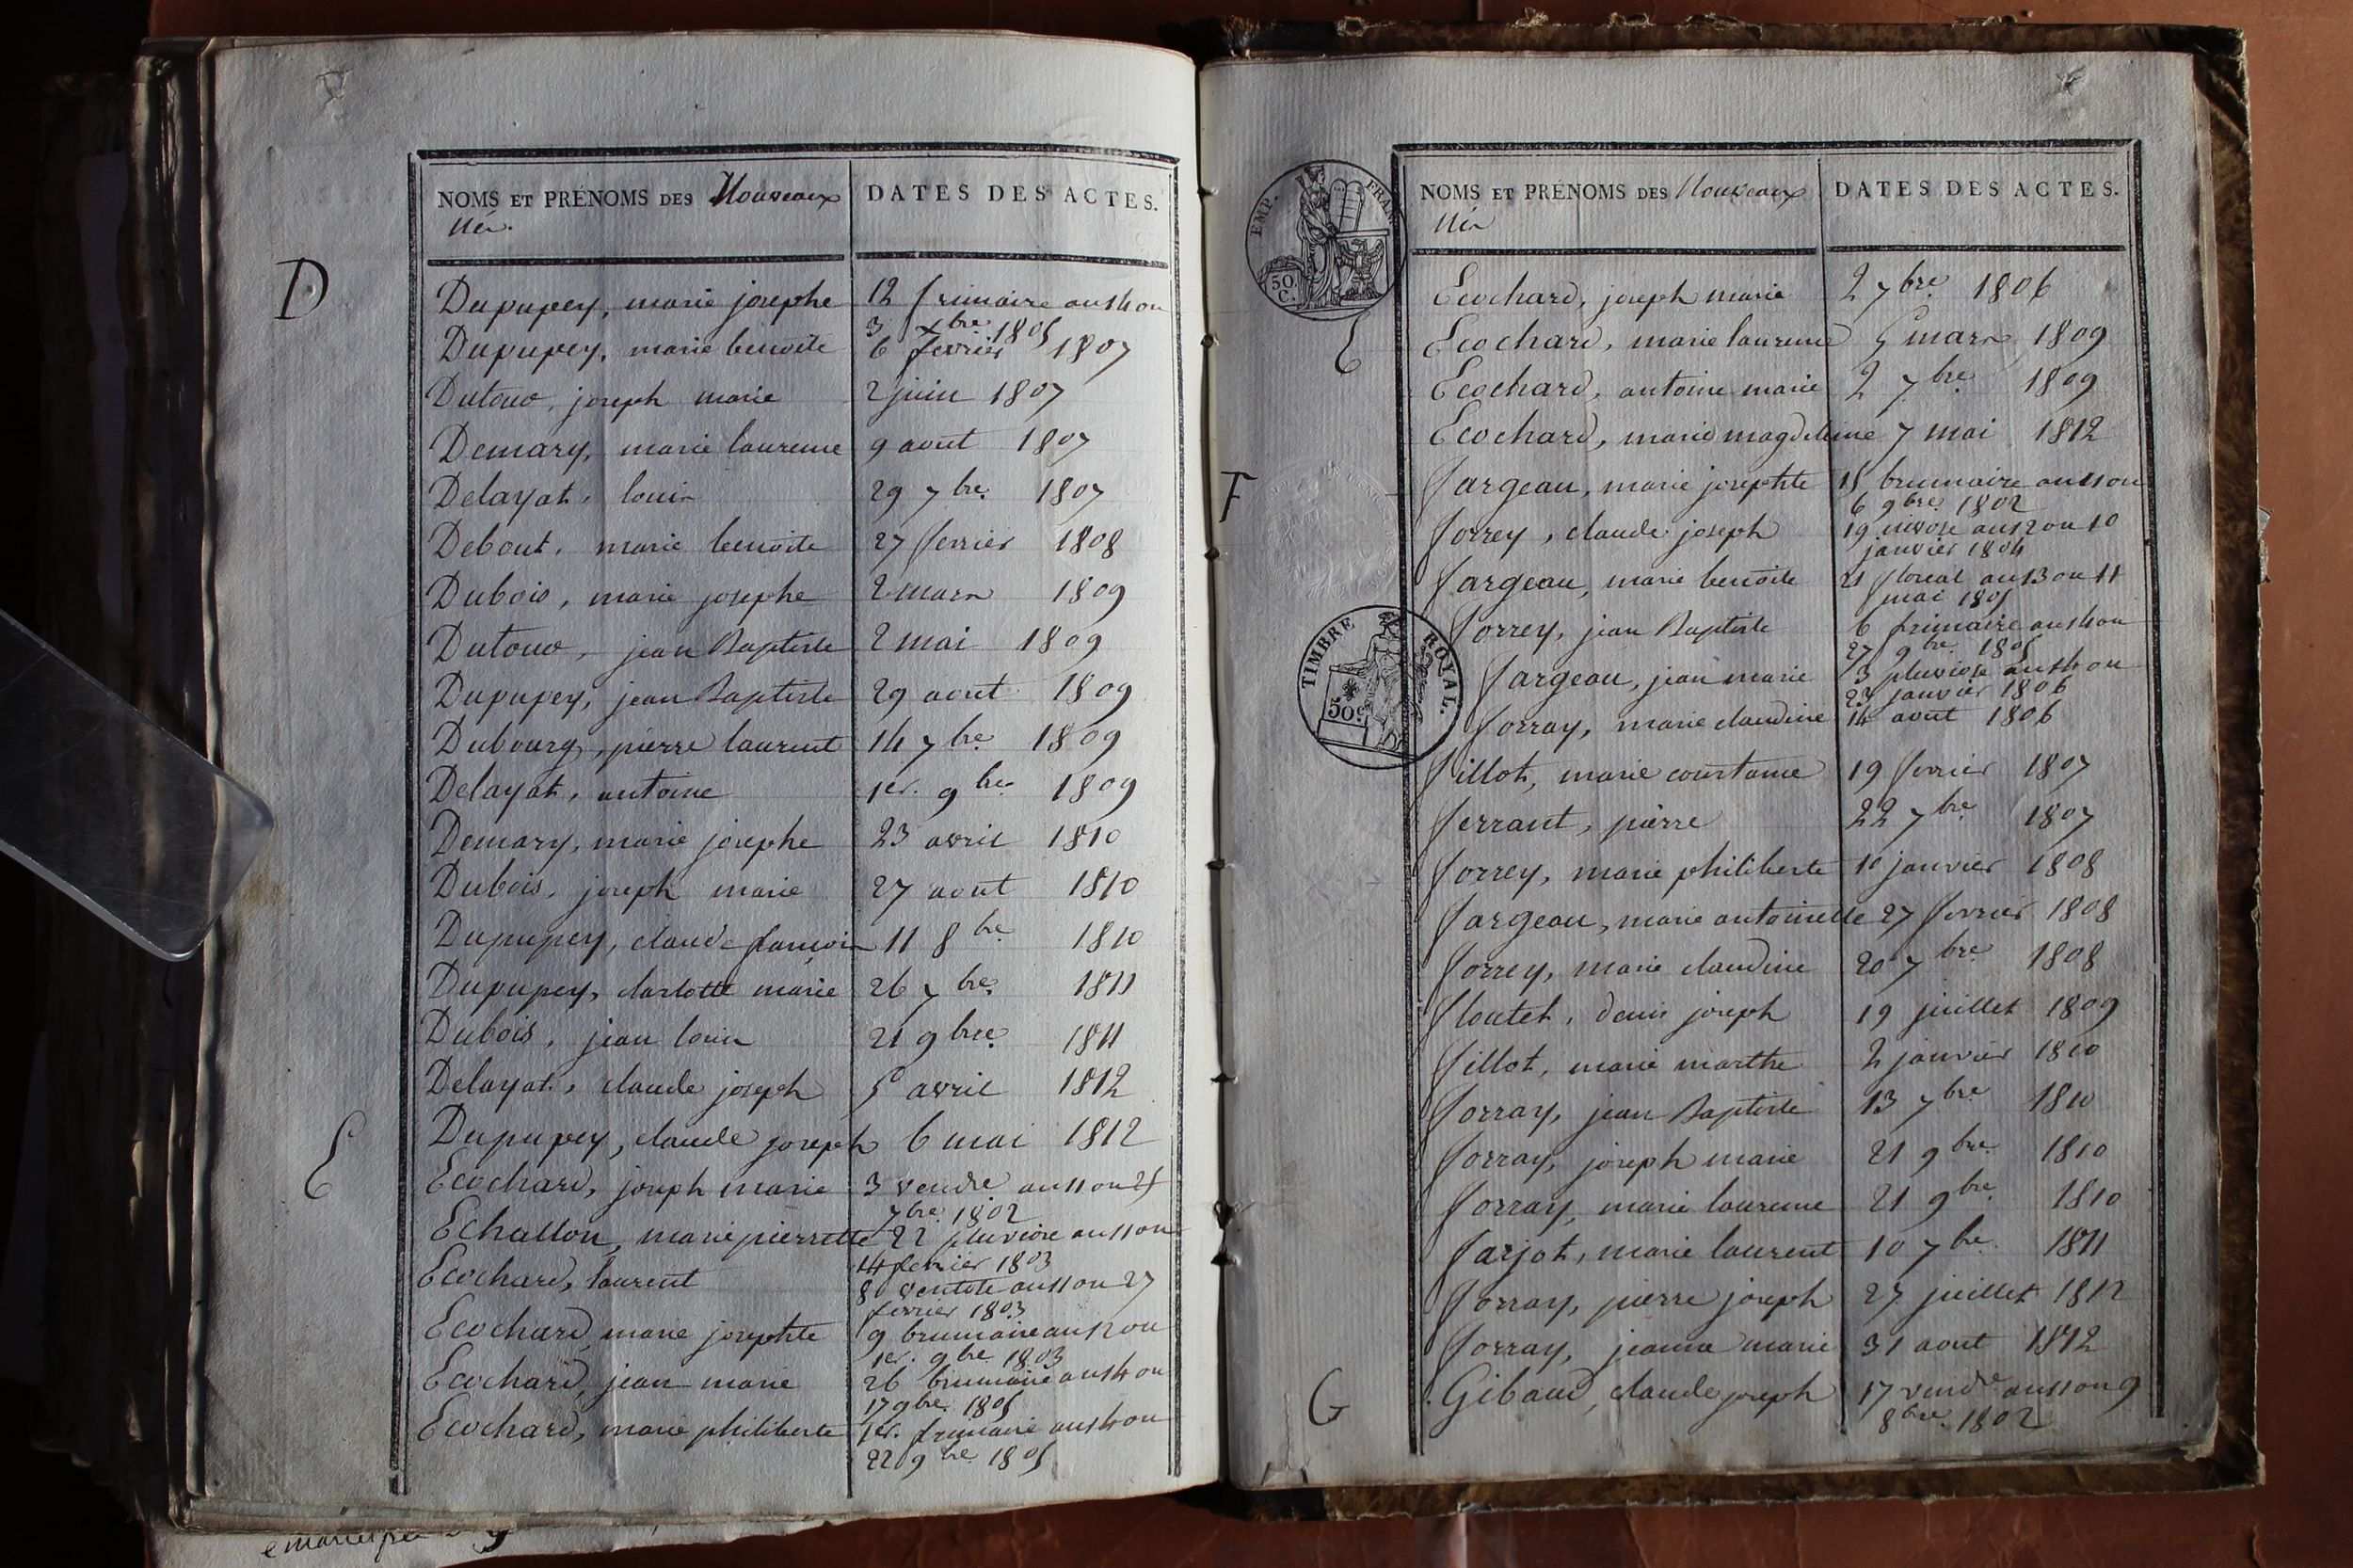 NOMS ET PRÉNOMS DES Nouveaux
Nés.
DATES DES ACTES.
D
Dupupey, marie josephe 12 frimaire an 14 ou
3 xbre 1805
Dupupey, marie benoite 6 fevrier 1807
Dutour, joseph marie 2 juin 1807
Demary, marie laurence 9 aout 1807
Delayat, louis 29 7bre. 1807
Debout, marie benoite 27 fevrier 1808
Dubois, marie josephe 2 mars 1809
Dutour, jean Baptiste 2 mai 1809
Dupupey, jean Baptiste 29 aout 1809
Dubourg, pierre laurent 14 7bre 1809
Delayat, antoine 1er. 9bre 1809
Demary, marie josephe 23 avril 1810
Dubois, joseph marie 27 aout 1810
Dupupey, claude françois 11 8bre 1810
Dupupey, charlotte marie 26 7bre. 1811
Dubois, jean louis 21 9bre. 1811
Delayat, claude joseph 5 avril 1812
Dupupey, claude joseph 6 mai 1812
E
Ecochard, joseph marie 3 vendre an 11 ou 25
7bre. 1802
Echallon, marie pierrette 22 pluviose an 11 ou
14 fevrier 1803
Ecochard, laurent 8 ventose an 11 ou 27
fevrier 1803
Ecochard, marie josephte 9 brumaire an 12 ou
1er. 9bre. 1803
Ecochard, jean marie 26 brumaire an 14 ou
17 9bre. 1805
Ecochard, marie philiberte 1er. frimaire an 14 ou
22 9bre 1805
NOMS ET PRÉNOMS DES Nouveaux
Nés
DATES DES ACTES.
EMP. FRAN
50.
C.
E
Ecochard, joseph marie 2 7bre. 1806
Ecochard, marie laurence 5 mars 1809
Ecochard, antoine marie 2 7bre. 1809
Ecochard, marie magdeleine 7 mai 1812
F
fargeau, marie josephte 15 brumaire an 11 ou
6 9bre. 1802
forrey, claude joseph 19 nivose an 12 ou 10
janvier 1804
fargeau, marie benoite 21 floreal an 13 ou 11
mai 1805
forrey, jean Baptiste 6 frimaire an 14 ou
27 9bre. 1805
TIMBRE ROYAL.
50c
fargeau, jean marie 3 pluviose an 14 ou
23 janvier 1806
forray, marie claudine 14 aout 1806
fillot, marie constance 19 fevrier 1807
ferrant, pierre 22 7bre. 1807
forrey, marie philiberte 10 janvier 1808
fargeau, marie antoinette 27 fevrier 1808
forrey, marie claudine 20 7bre 1808
floutet, denis joseph 19 juillet 1809
fillot, marie marthe 2 janvier 1810
forray, jean Baptiste 13 7bre 1810
forray, joseph marie 21 9bre. 1810
forray, marie laurence 21 9bre. 1810
farjot, marie laurent 10 7bre. 1811
forray, pierre joseph 27 juillet 1812
forray, jeanne marie 31 aout 1812
G
Gibaud, claude joseph 17 vendre an 11 ou 9
8bre. 1802